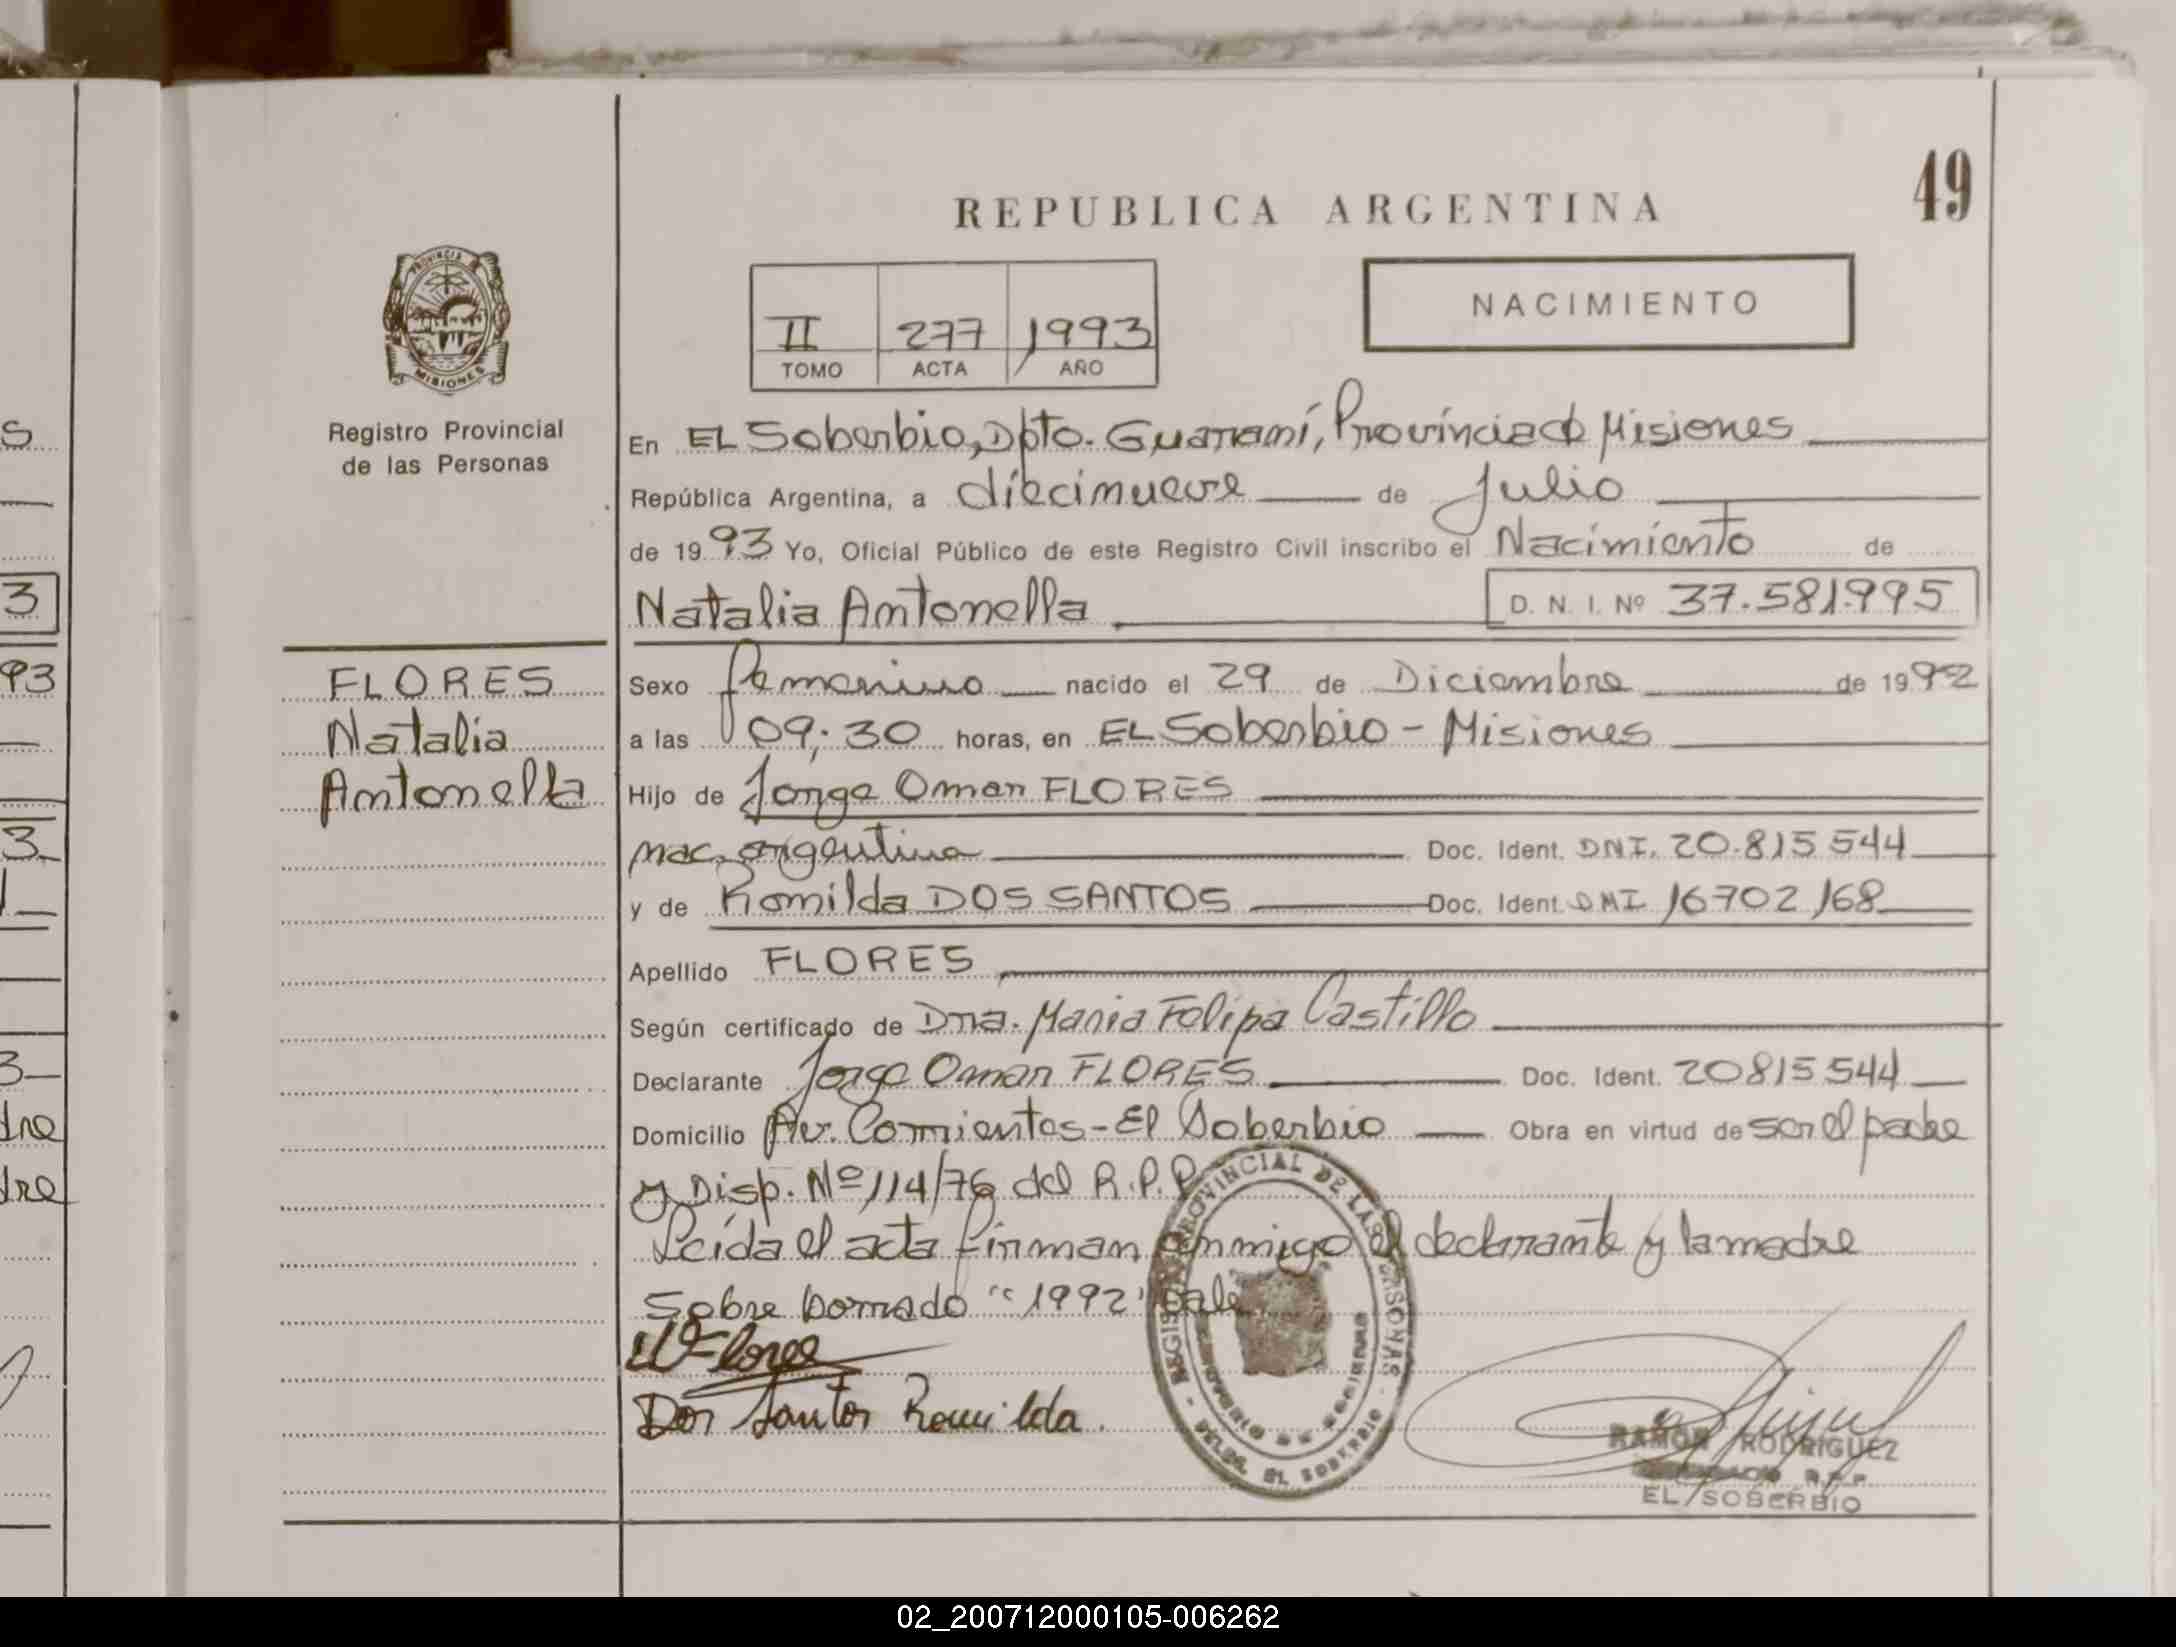 REPUBLICA ARGENTINA
49
PROVINCIA DE
MISIONES
Registro Provincial
de las Personas
II 277 1993
TOMO ACTA AÑO
NACIMIENTO
En EL Soberbio, Dpto. Guaraní, Provincia de Misiones
República Argentina, a diecinueve de Julio
de 1993 Yo, Oficial Público de este Registro Civil inscribo el Nacimiento de
Natalia Antonella D. N. I. Nº 37.581.995
FLORES
Natalia
Antonella
Sexo femenino nacido el 29 de Diciembre de 1992
a las 09:30 horas, en EL Soberbio - Misiones
Hijo de Jorge Omar FLORES
nac. argentina Doc. Ident. DNI. 20.815 544
y de Romilda DOS SANTOS Doc. Ident. DNI 16702168
Apellido FLORES
Según certificado de Dra. Maria Felipa Castillo
Declarante Jorge Omar FLORES Doc. Ident. 20815544
Domicilio Av. Corrientes - El Soberbio Obra en virtud de ser el padre
y Disp. Nº 114/76 del R.P.P.
Leída el acta firman conmigo el declarante y la madre
Sobre borrado "1992" Vale
Dos Santos Romilda.
REGISTRO PROVINCIAL DE LAS PERSONAS
DELEG. EL SOBERBIO
RAMON RODRIGUEZ
R.P.P.
EL SOBERBIO
S
3
93
3
3
dre
dre
02_200712000105-006262